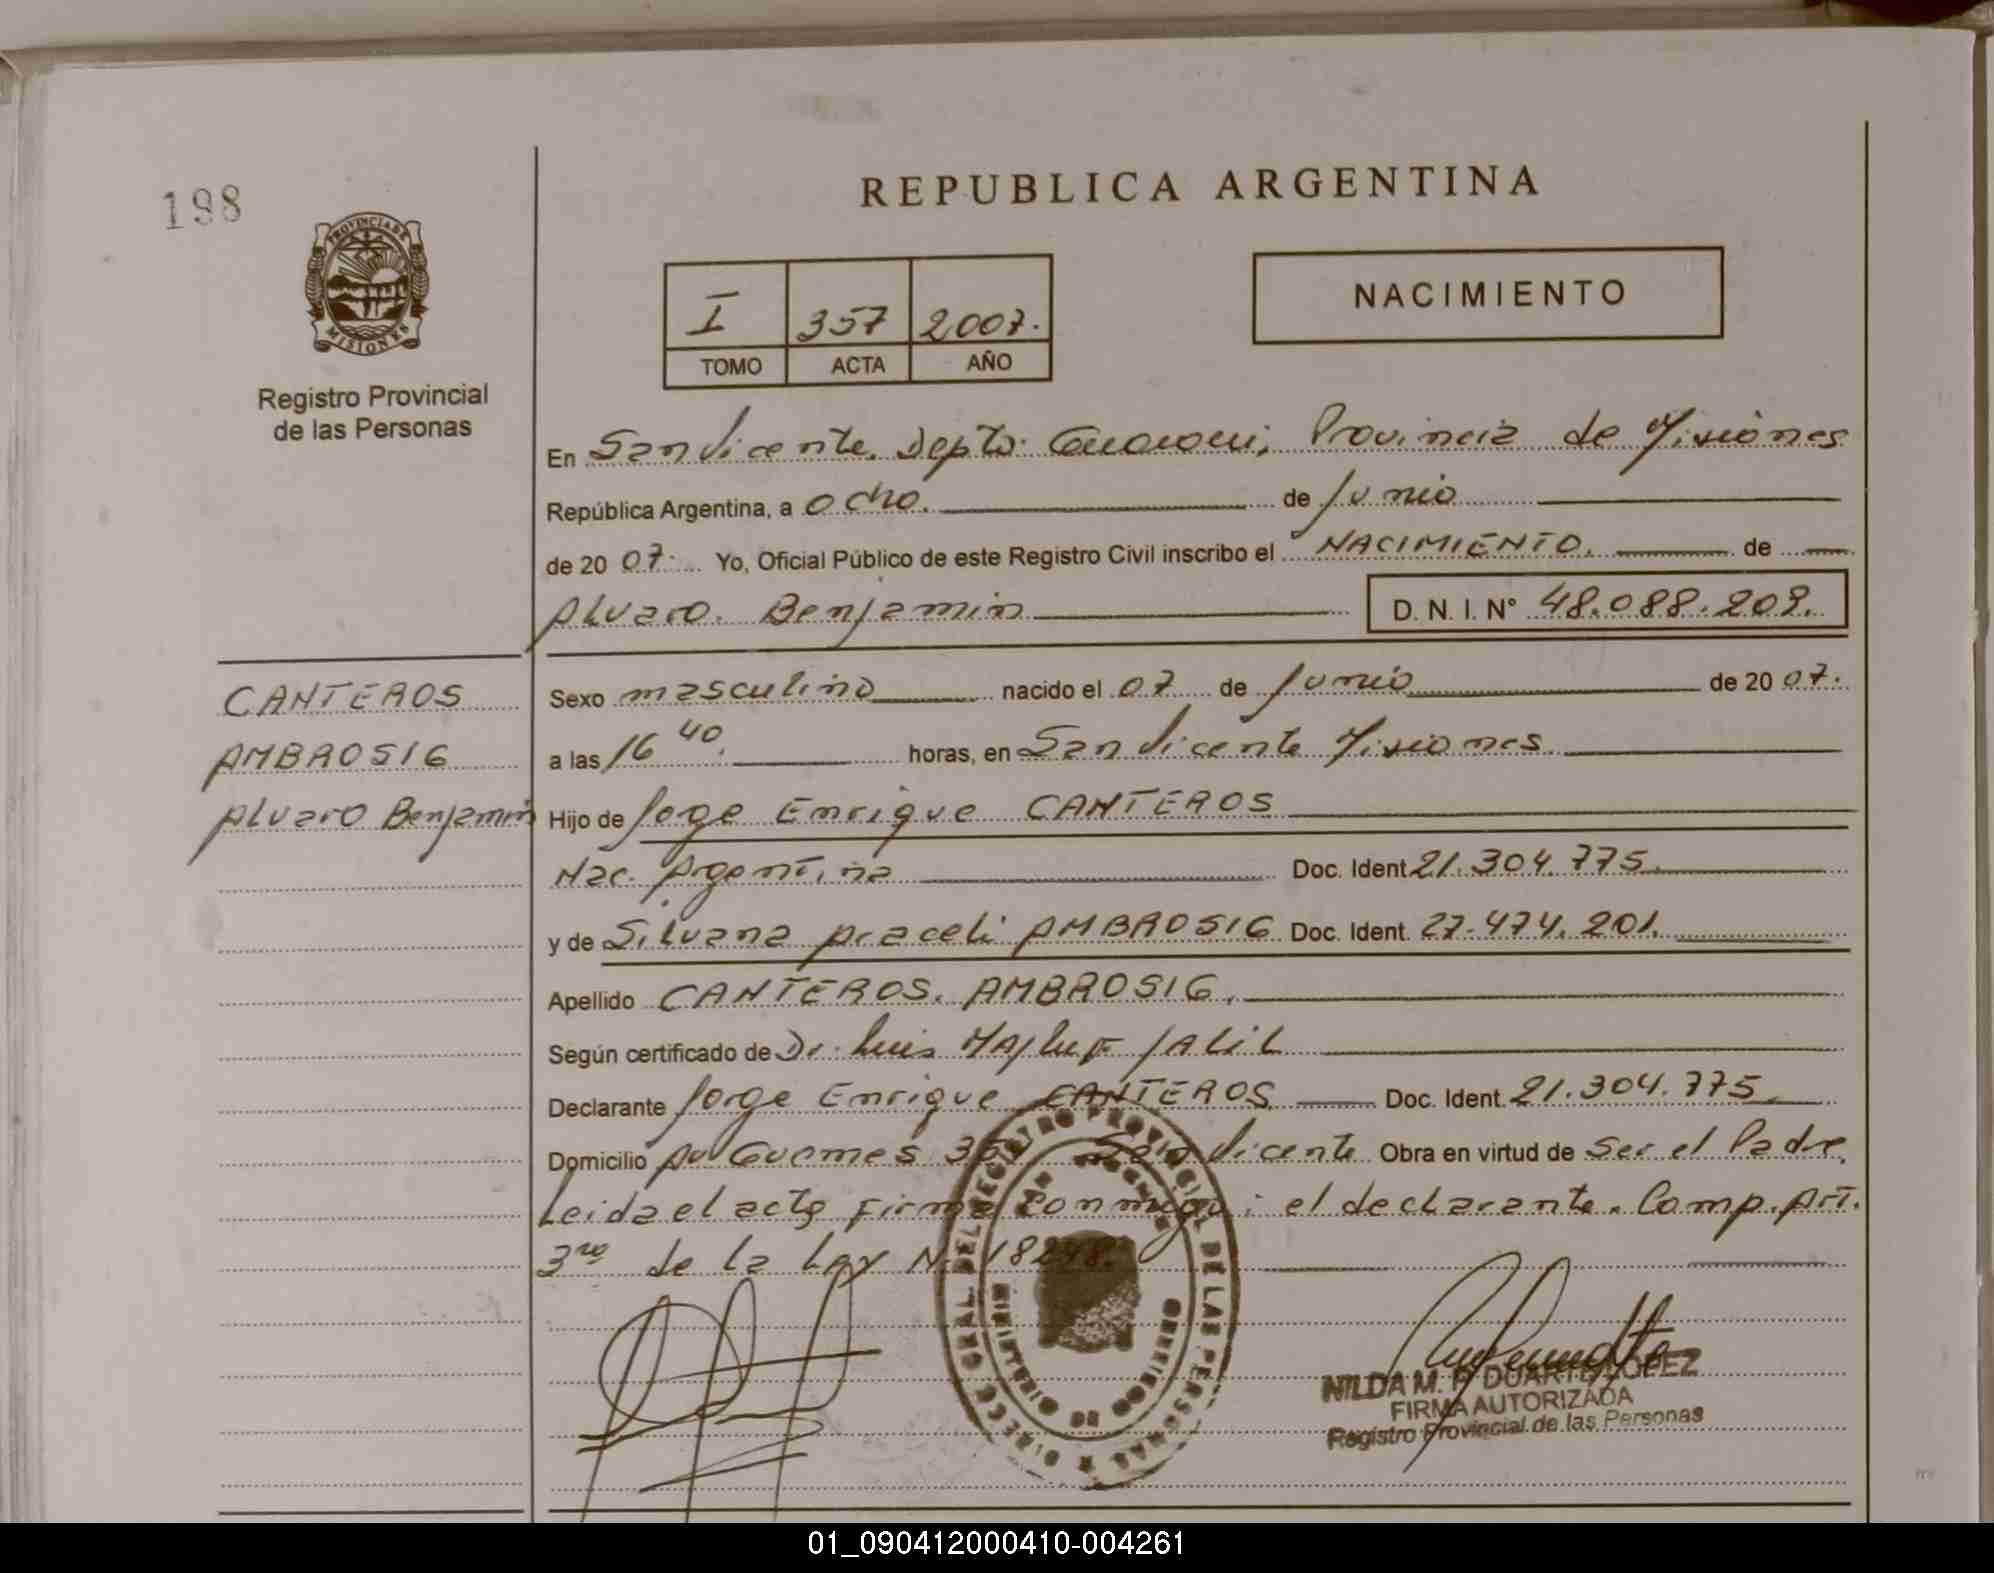 198
PROVINCIA DE
MISIONES
Registro Provincial
de las Personas
REPUBLICA ARGENTINA
I 357 2007.
TOMO ACTA AÑO
NACIMIENTO
En San Vicente. Depto: Guarani, Provincia de Misiones
República Argentina, a ocho. de Junio
de 20 07. Yo, Oficial Público de este Registro Civil inscribo el NACIMIENTO. de
Alvaro. Benjamin D. N. I. N° 48.088.209.
CANTEROS
AMBROSIG
Alvaro Benjamin
Sexo masculino nacido el 07 de Junio de 20 07.
a las 16 40. horas, en San Vicente Misiones
Hijo de Jorge Enrique CANTEROS
Nac. Argentina Doc. Ident. 21.304.775.
y de Silvana Araceli AMBROSIG Doc. Ident. 27.474.201.
Apellido CANTEROS. AMBROSIG.
Según certificado de Dr. Luis Majluf Jalil
Declarante Jorge Enrique CANTEROS Doc. Ident. 21.304.775.
Domicilio Av Guemes San Vicente Obra en virtud de Ser el Padre.
Leida el acta firma conmigo: el declarante. Comp. Art.
3ro de la Ley N. 18248.
DIRECC. GRAL. DEL REGISTRO PROVINCIAL DE LAS PERSONAS
MINISTERIO DE GOBIERNO
NILDA M. R. DUARTE LOPEZ
FIRMA AUTORIZADA
Registro Provincial de las Personas
01_090412000410-004261